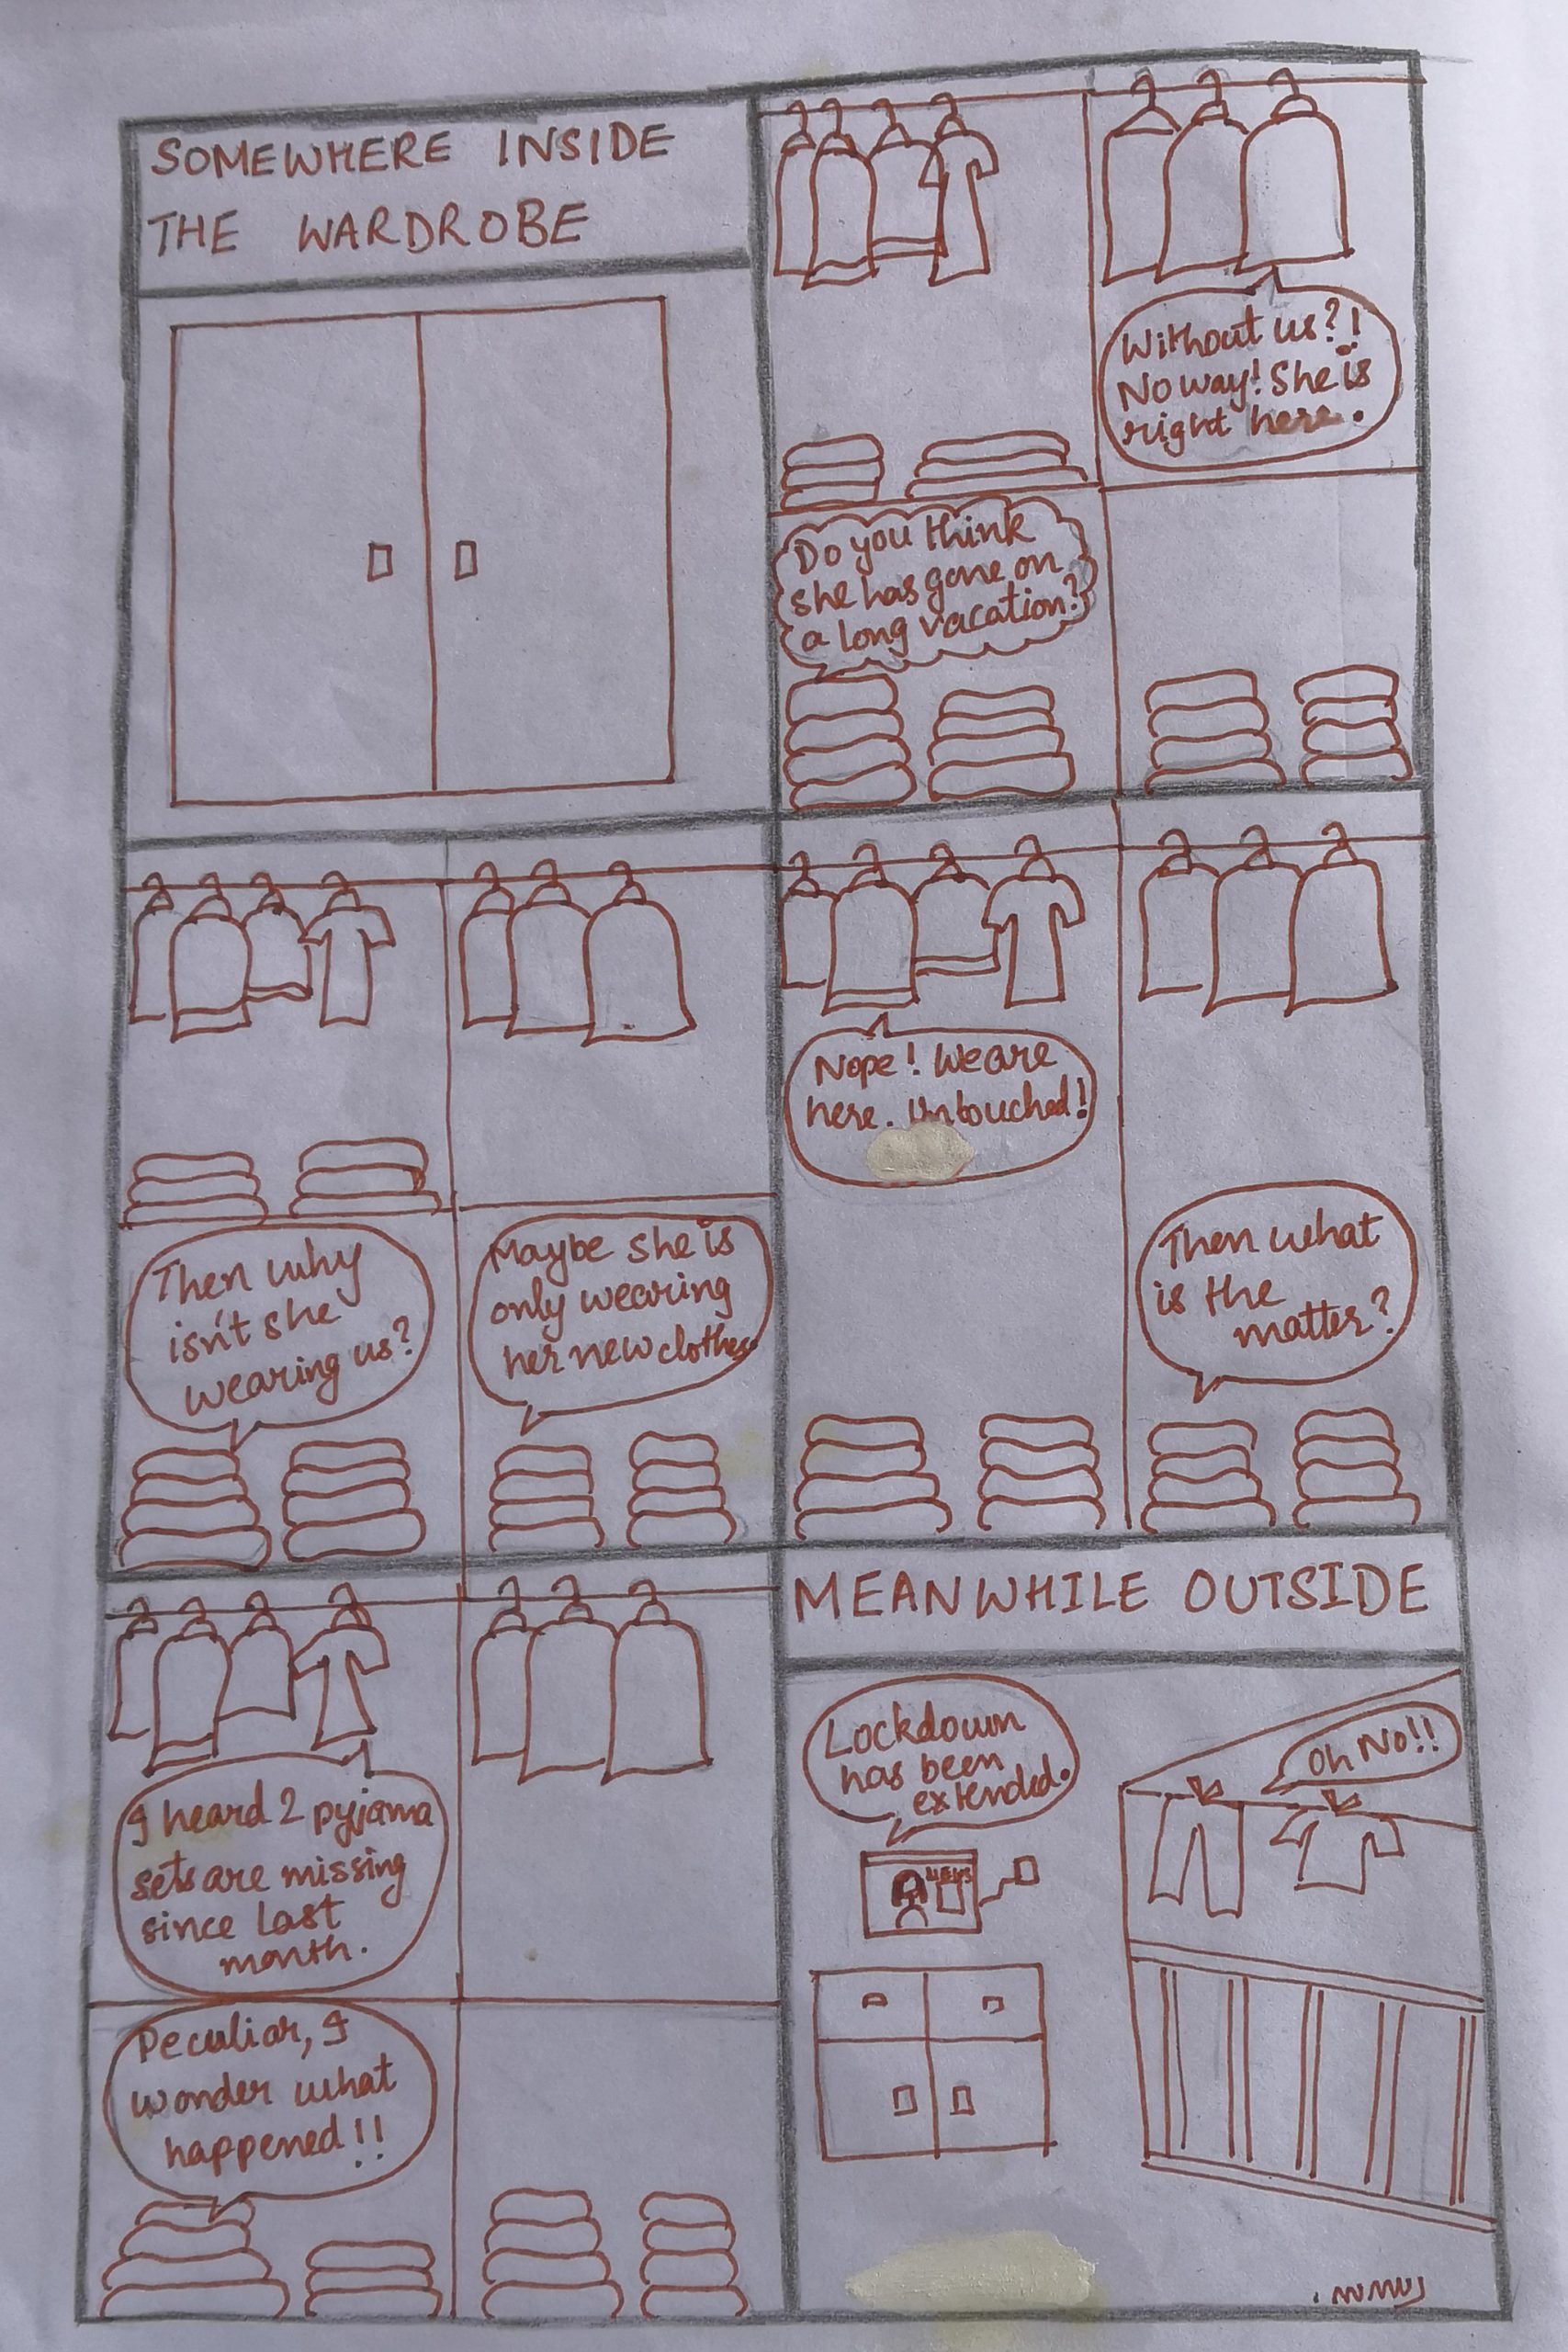 SOMEWHERE INSIDE
THE WARDROBE
Do you think
she has gone on
a long vacation?
Without us?!
No way! She is
right here.
Then why
isn't she
wearing us?
Maybe she is
only wearing
her new clothes.
Nope! We are
here. Untouched!
Then what
is the
matter?
I heard 2 pyjama
sets are missing
since last
month.
Peculiar, I
wonder what
happened!!
MEANWHILE OUTSIDE
Lockdown
has been
extended.
NEWS
Oh No!!